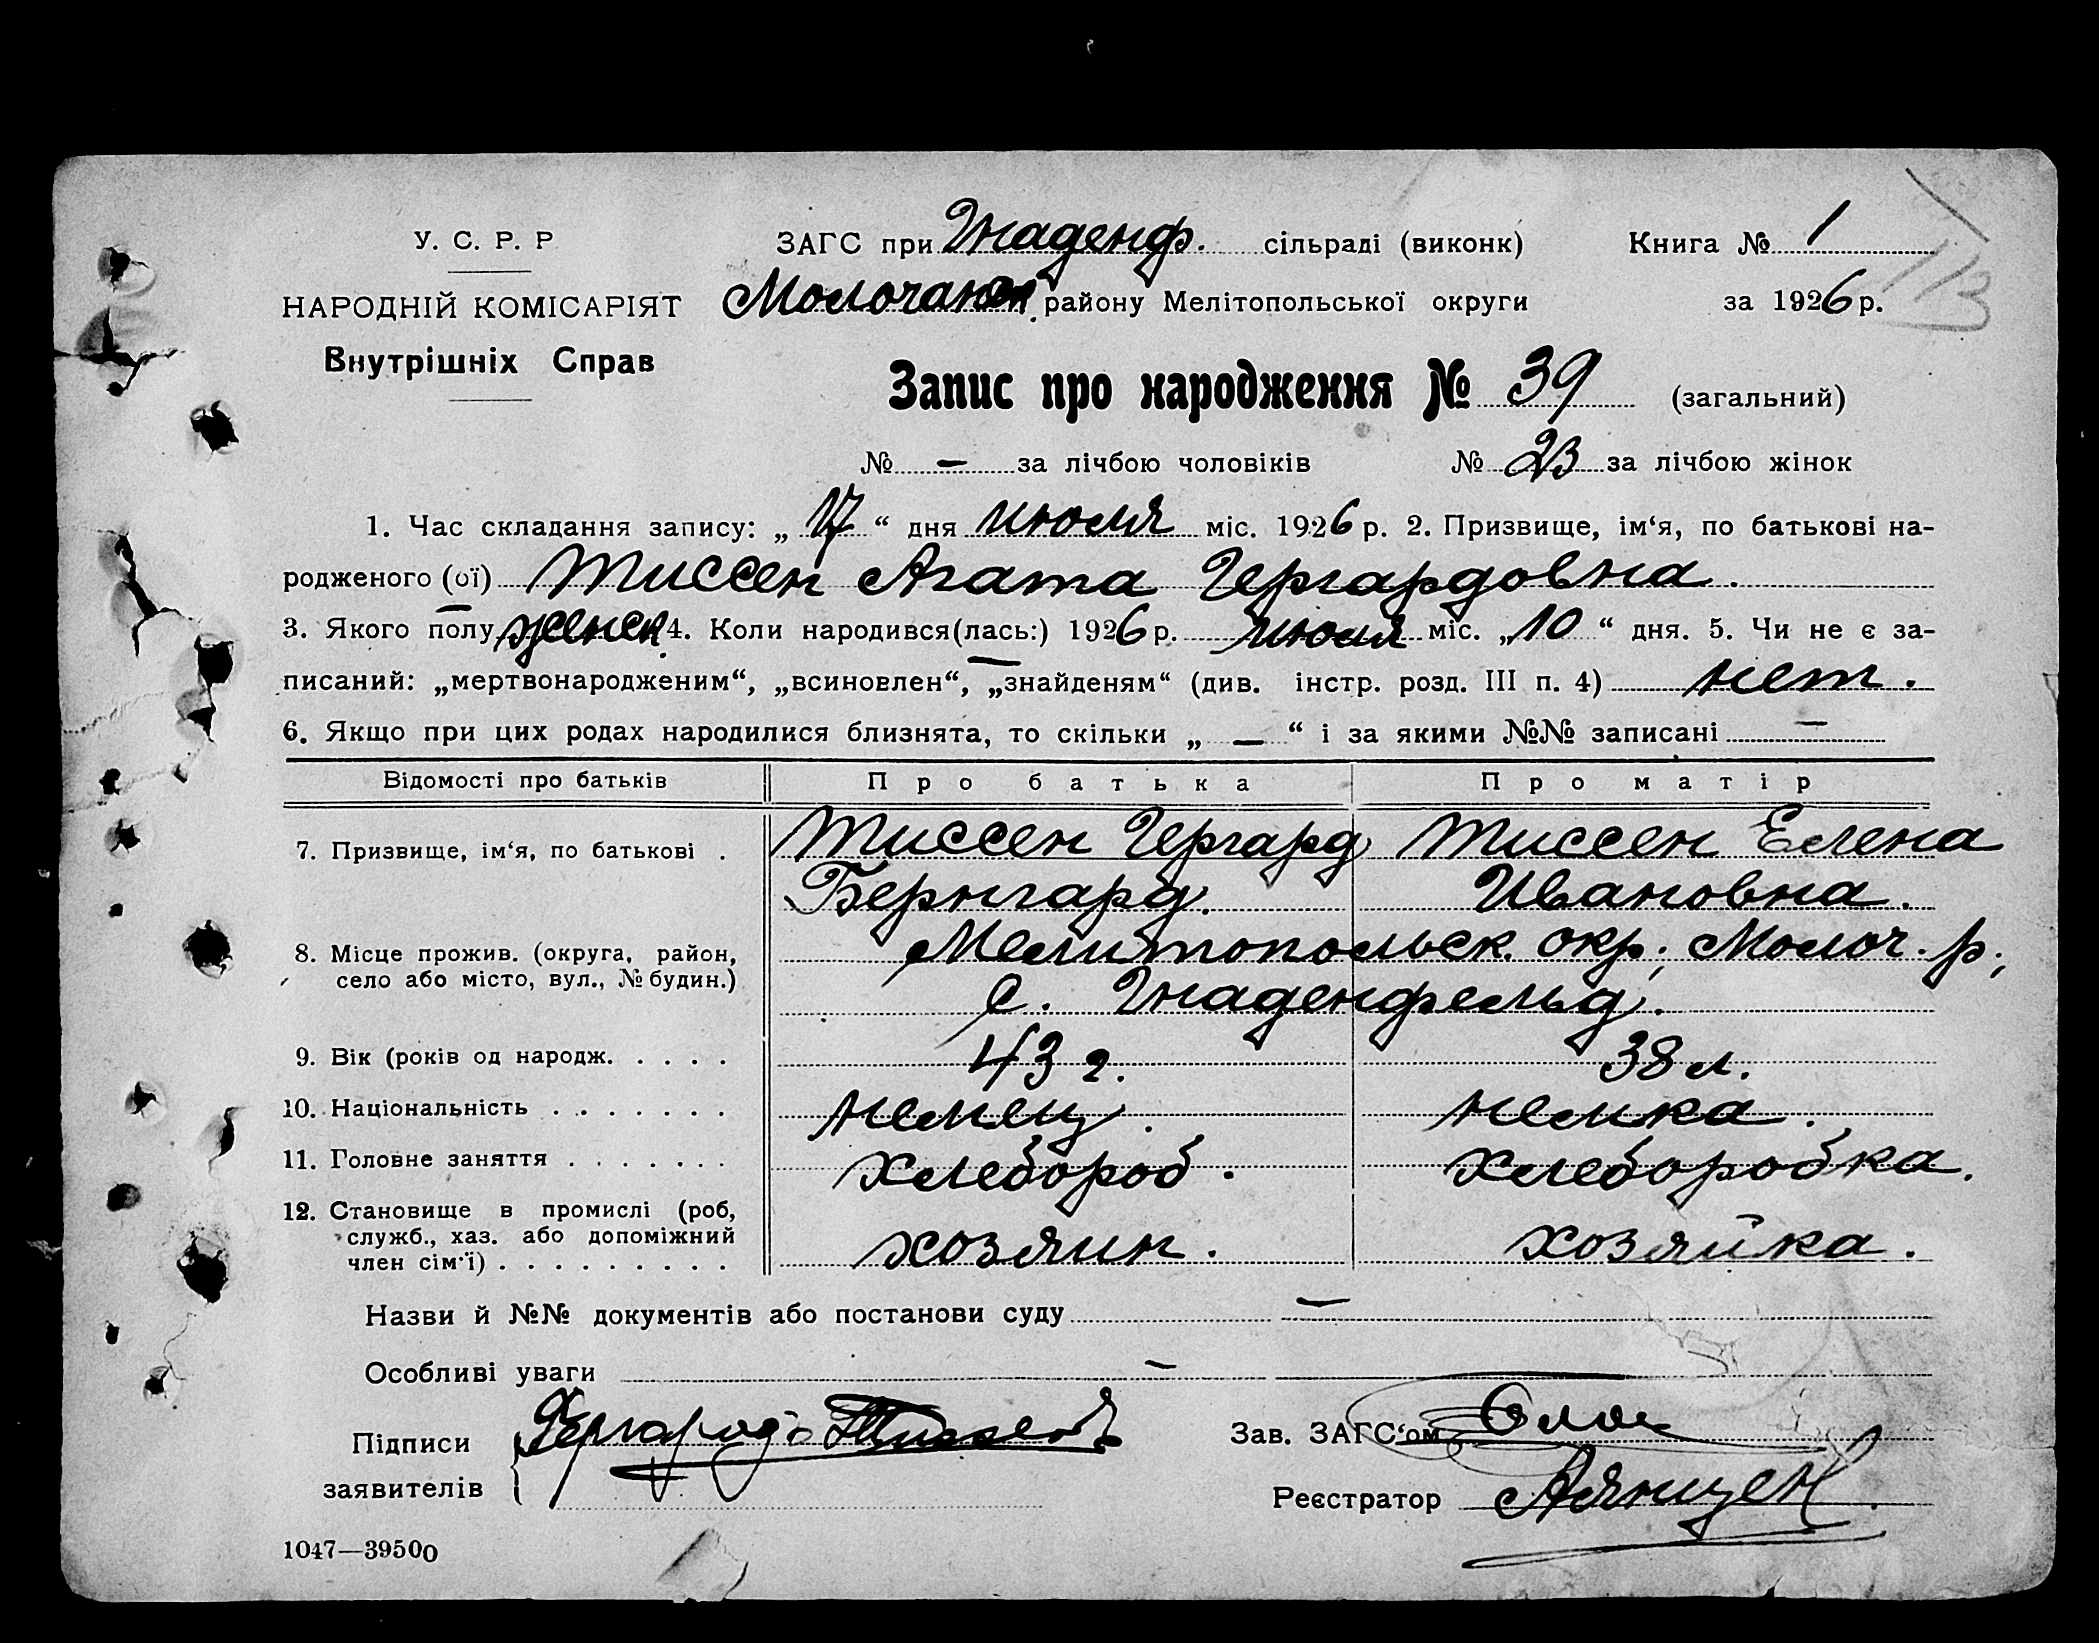 У. С. Р. Р
НАРОДНІЙ КОМІСАРІЯТ
Внутрішніх Справ
ЗАГС при Гнаденф. сільраді (виконк)
Молочанск. району Мелітопольської округи
Книга № 1
за 1926 р.
113
Запис про народження № 39 (загальний)
№ — за лічбою чоловіків № 23 за лічбою жінок
1. Час складання запису: „ 17 “ дня июля міс. 1926 р. 2. Призвище, ім‘я, по батькові на-
родженого (ої) Тиссен Агата Гергардовна.
3. Якого полу женск. 4. Коли народився(лась:) 1926 р. июля міс. „ 10 “ дня. 5. Чи не є за-
писаний: „мертвонародженим“, „всиновлен“, „знайденям“ (див. інстр. розд. III п. 4) нет.
6. Якщо при цих родах народилися близнята, то скільки „ — “ і за якими №№ записані —
Відомості про батьків Про батька Про матір
7. Призвище, ім‘я, по батькові . Тиссен Гергард Тиссен Елена
Бернгард. Ивановна.
8. Місце прожив. (округа, район, Мелитопольск. окр., Молоч. р.,
село або місто, вул., № будин.) с. Гнаденфельд.
9. Вік (років од народж. . . . . 43 г. 38 л.
10. Національність . . . . . . . немец. немка.
11. Головне заняття . . . . . . . хлебороб. хлеборобка.
12. Становище в промислі (роб,
служб., хаз. або допоміжний
член сім‘ї) . . . . . . . . . хозяин. хозяйка.
Назви й №№ документів або постанови суду —
Особливі уваги —
Підписи
заявителів Гергард Тиссен
Зав. ЗАГС‘ом
Реєстратор
1047—39500